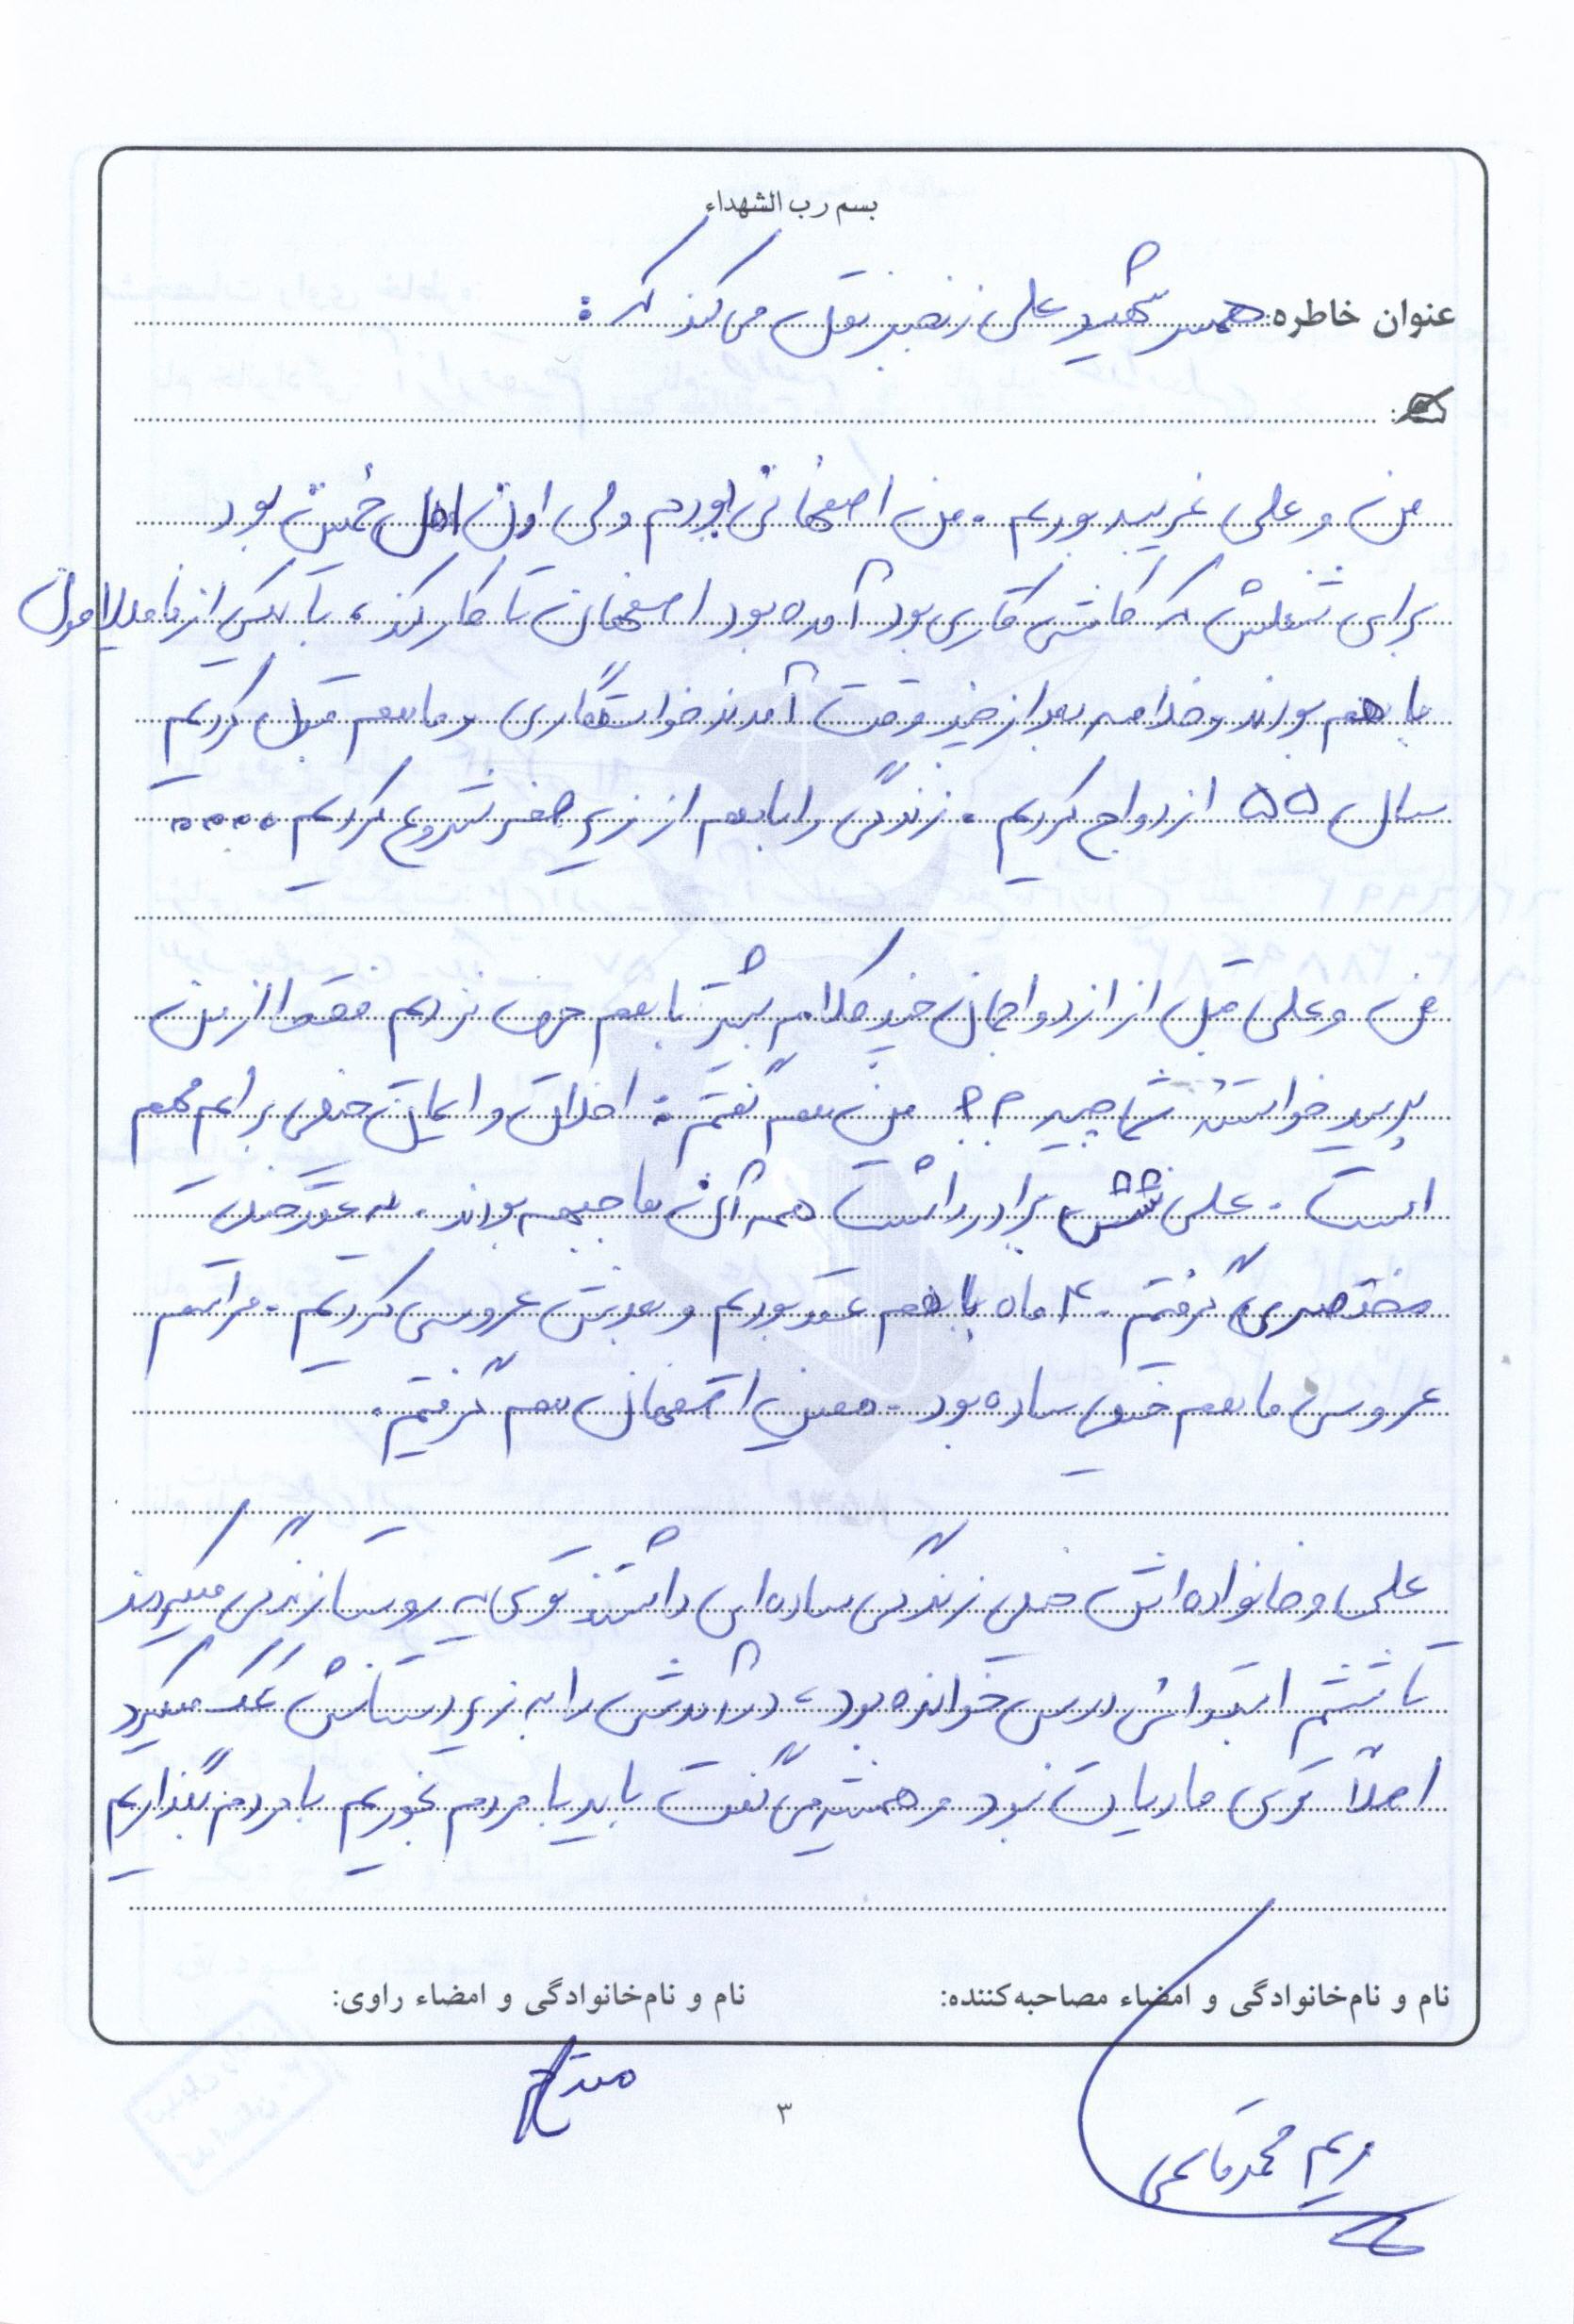 بسم رب الشهداء
عنوان خاطره: همسر شهید علی رنجبر نقل می کند که :
من و علی غریبه بودیم . من اصفهانی بودم ولی اون اهل خمین بود
برای شغلش که کاشی کاری بود آمده بود اصفهان تا کار کند ، با یکی از فامیلامون
با هم بودند و خلاصه بعد از چند وقت آمدند خواستگاری و ما هم قبول کردیم
سال ۵۵ ازدواج کردیم . زندگی را با هم از زیر صفر شروع کردیم .....
من و علی قبل از ازدواجمان چند کلام بیشتر با هم حرف نزدیم فقط از من
پرسید خواستت شما چیه ؟؟ من هم گفتم : اخلاق و ایمان خیلی برایم مهم
است . علی شش برادر داشت همه آن ها جبهه بودند . یه عقد خیلی
مختصری گرفتیم . ۴ ماه با هم عقد بودیم و بعدش عروسی کردیم . مراسم
عروسی ما هم خیلی ساده بود . همین اصفهان هم گرفتیم .
علی و خانواده اش خیلی زندگی ساده ای داشتند توی یه روستا زندگی میکردند
تا ششم ابتدائی درس خوانده بود ، درآمدش را به زیر دستانش کمک میکرد
اصلاً توی مادیات نبود و همیشه می گفت باید با مردم بخوریم با مردم بگذاریم
نام و نام‌خانوادگی و امضاء مصاحبه‌کننده: نام و نام‌خانوادگی و امضاء راوی:
مریم محمدقاسمی
۳